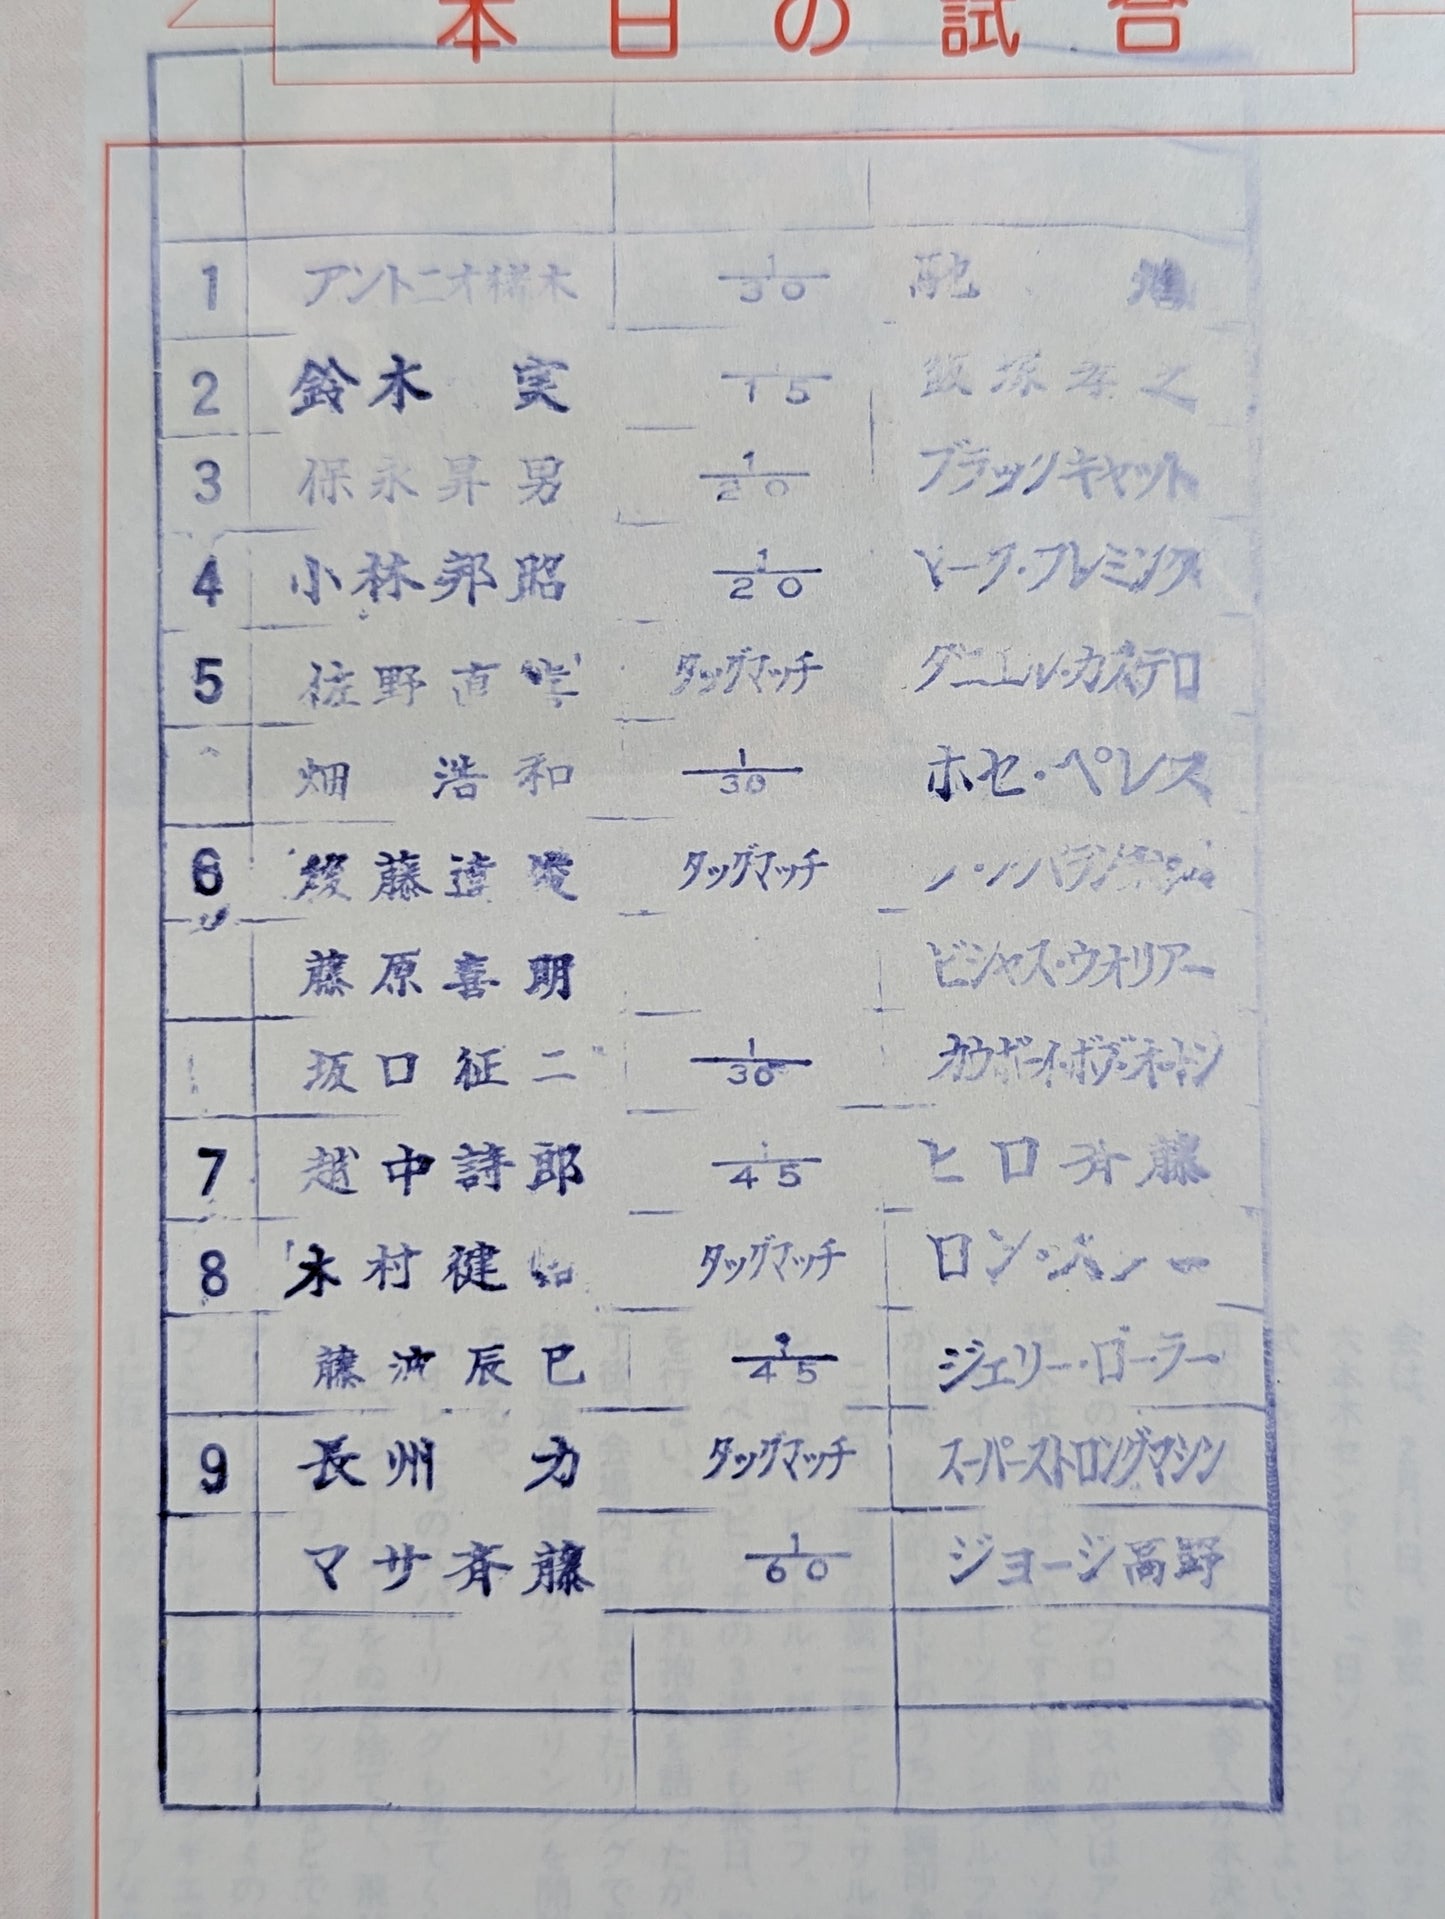 本日の試合
1 アントニオ猪木 1/30
2 鈴木 実 1/15 飯塚孝之
3 保永昇男 1/20 ブラックキャット
4 小林邦昭 1/20 フレミング
5 佐野直 タッグマッチ ダニエル・カステロ
畑 浩和 1/30 ホセ・ペレス
6 後藤達俊 タッグマッチ
藤原喜明 ビシャス・ウオリアー
坂口征二 1/30 カウボーイ・ボブ・オートン
7 越中詩郎 1/45 ヒロ斉藤
8 木村健 タッグマッチ ロン・
藤波辰巳 1/45 ジェリー・ローラー
9 長州 力 タッグマッチ スーパーストロングマシン
マサ斉藤 1/60 ジョージ高野